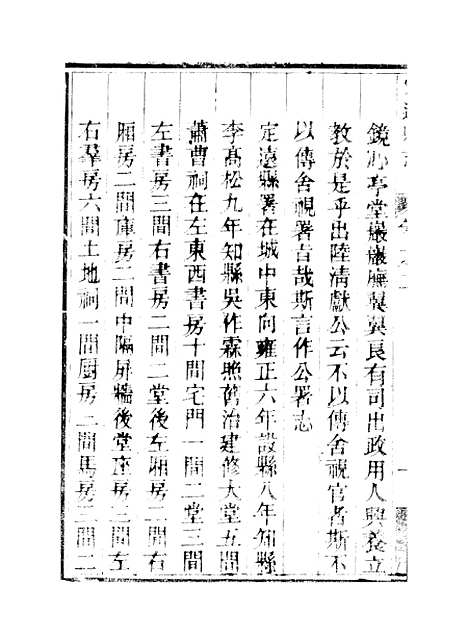 鏡心亭堂巖巖廡翼翼良有司出政用人興養立
教於是乎出陸清獻公云不以傳舍視官者斯不
以傳舍視署旨哉斯言作公署志
定遠縣署在城中東向雍正六年設縣八年知縣
李高松九年知縣吳作霖照舊治建修大堂五間
蕭曹祠在左東西書房十間宅門一間二堂三間
左書房三間右書房二間二堂後左厢房二間右
厢房二間庫房二間中隔屏牆後堂庄房三間左
右羣房六間土地祠一間厨房二間馬房二間二